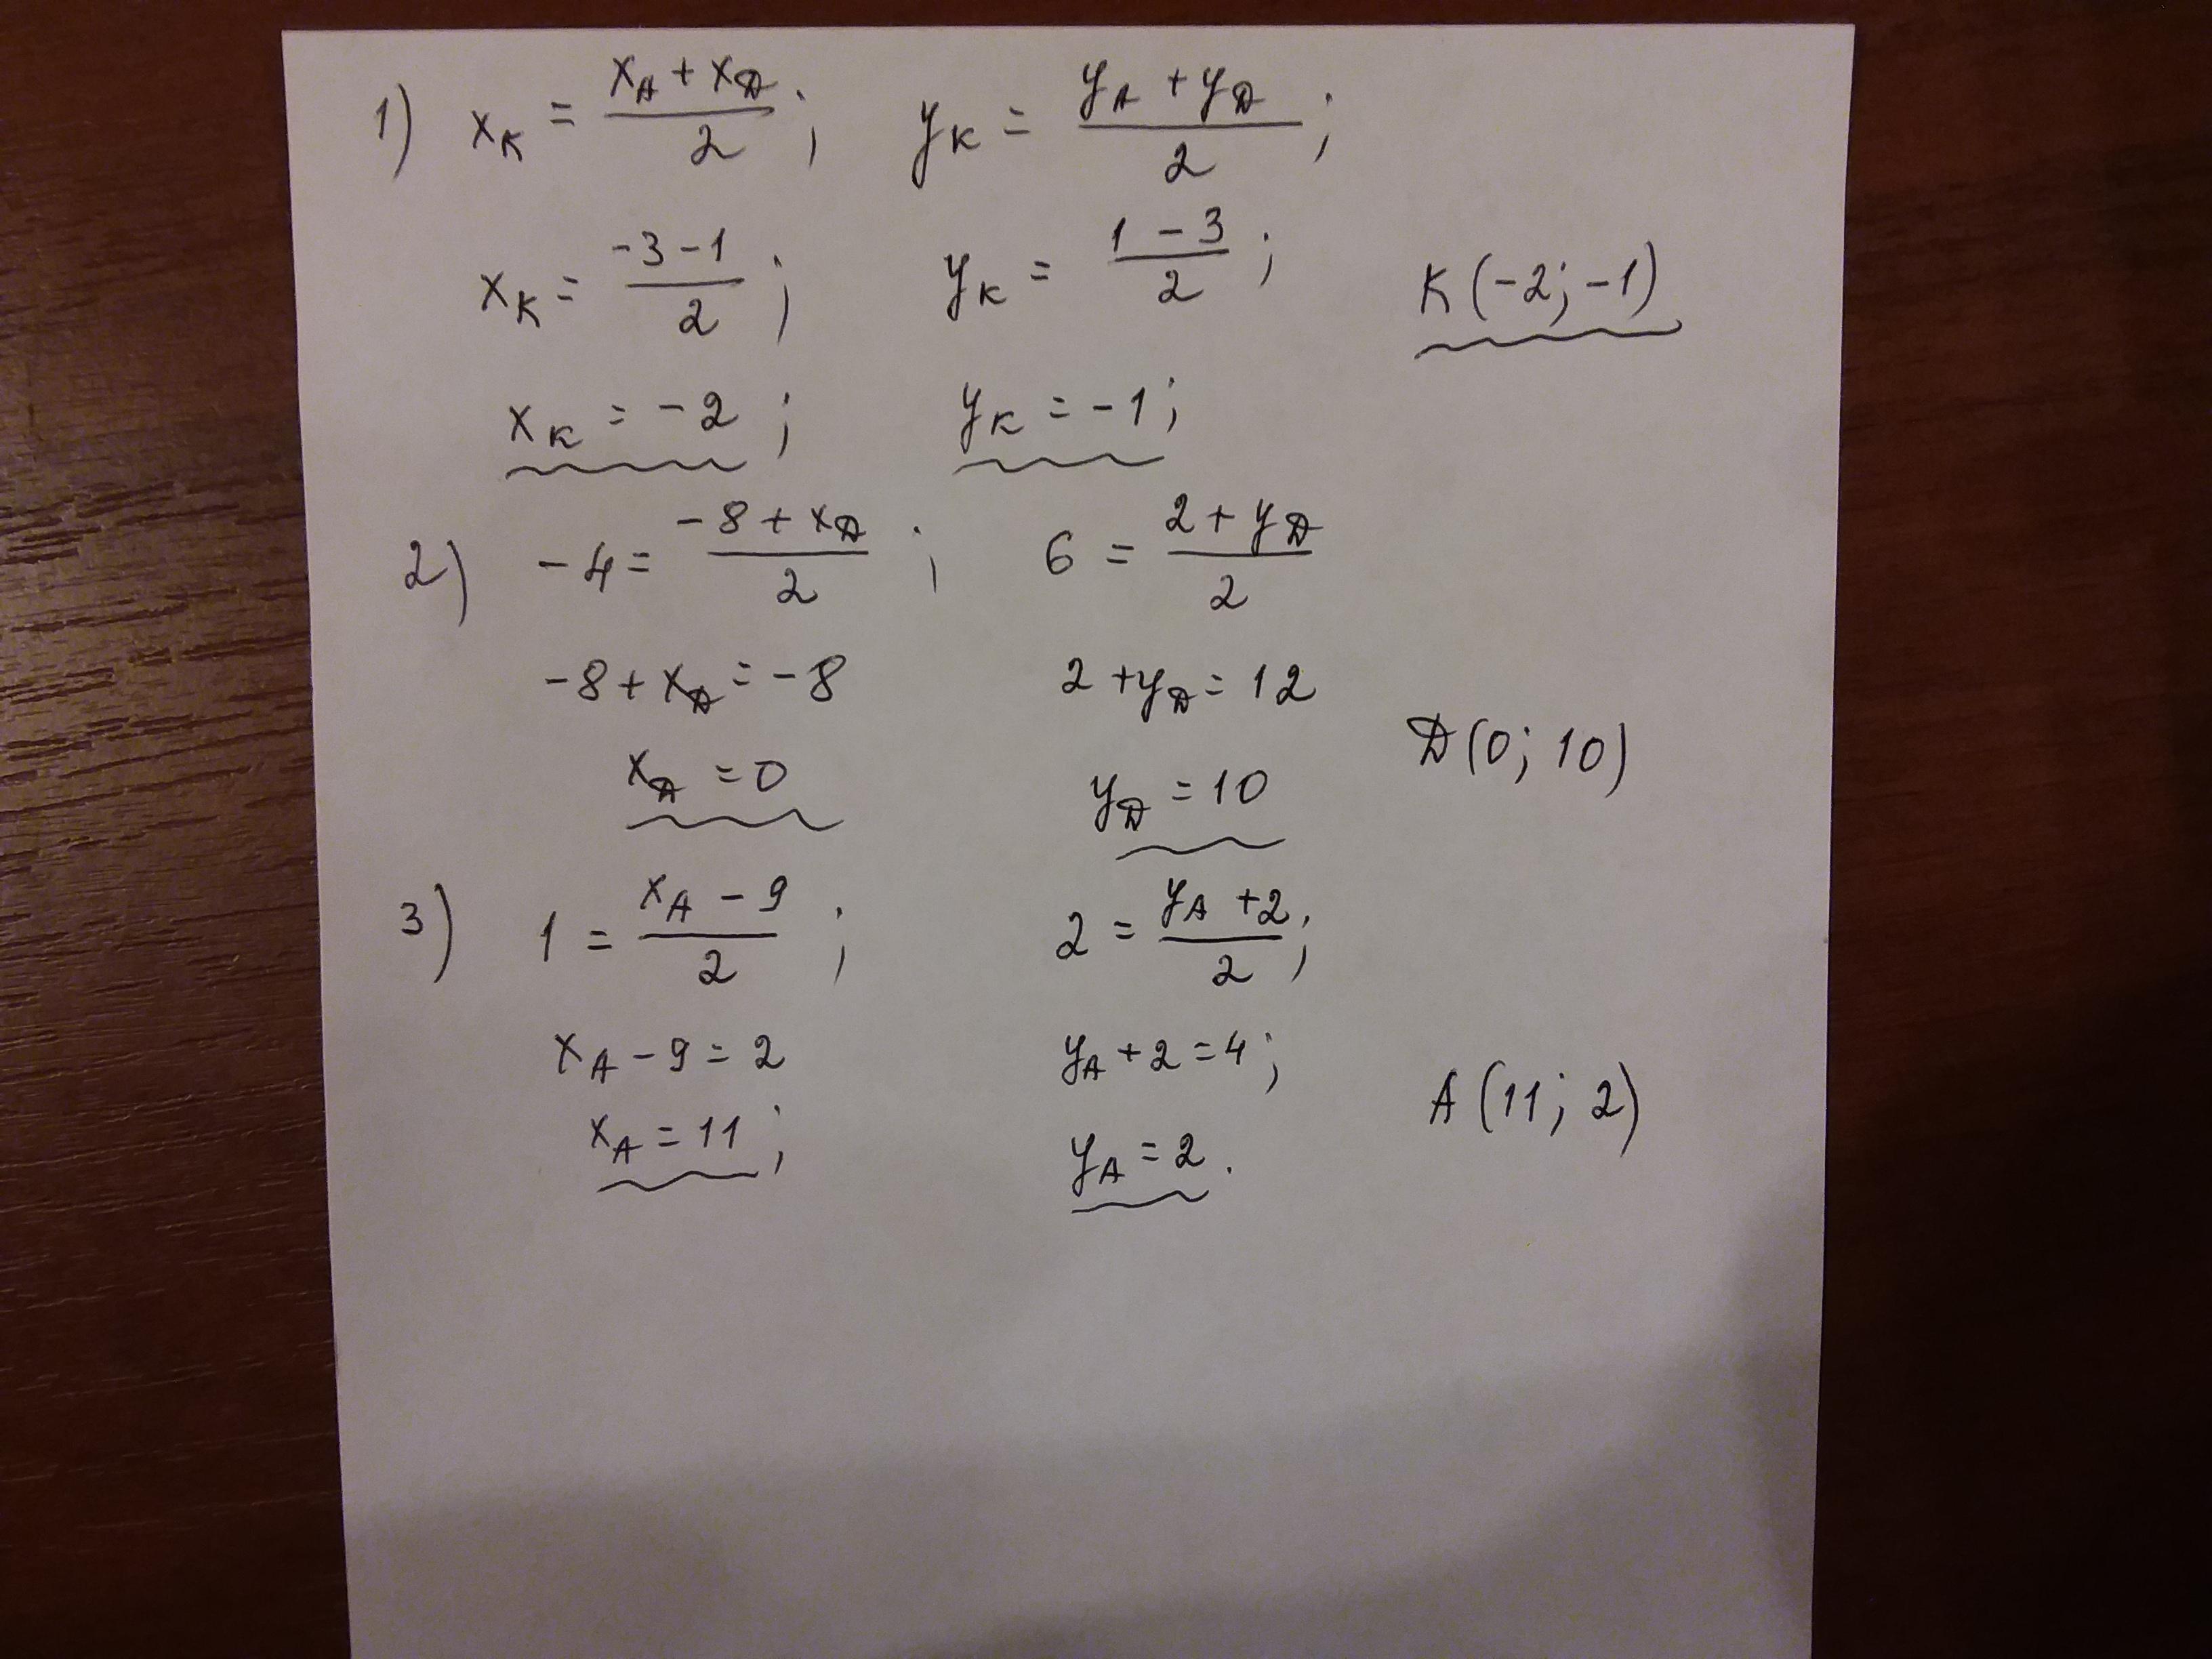 1) x_K = (x_A + x_D)/2; y_K = (y_A + y_D)/2;
x_K = (-3-1)/2; y_K = (1-3)/2; K(-2; -1)
x_K = -2; y_K = -1;
2) -4 = (-8 + x_D)/2; 6 = (2 + y_D)/2
-8 + x_D = -8 2 + y_D = 12
x_D = 0 y_D = 10 D(0; 10)
3) 1 = (x_A - 9)/2; 2 = (y_A + 2)/2;
x_A - 9 = 2 y_A + 2 = 4;
x_A = 11; y_A = 2. A(11; 2)